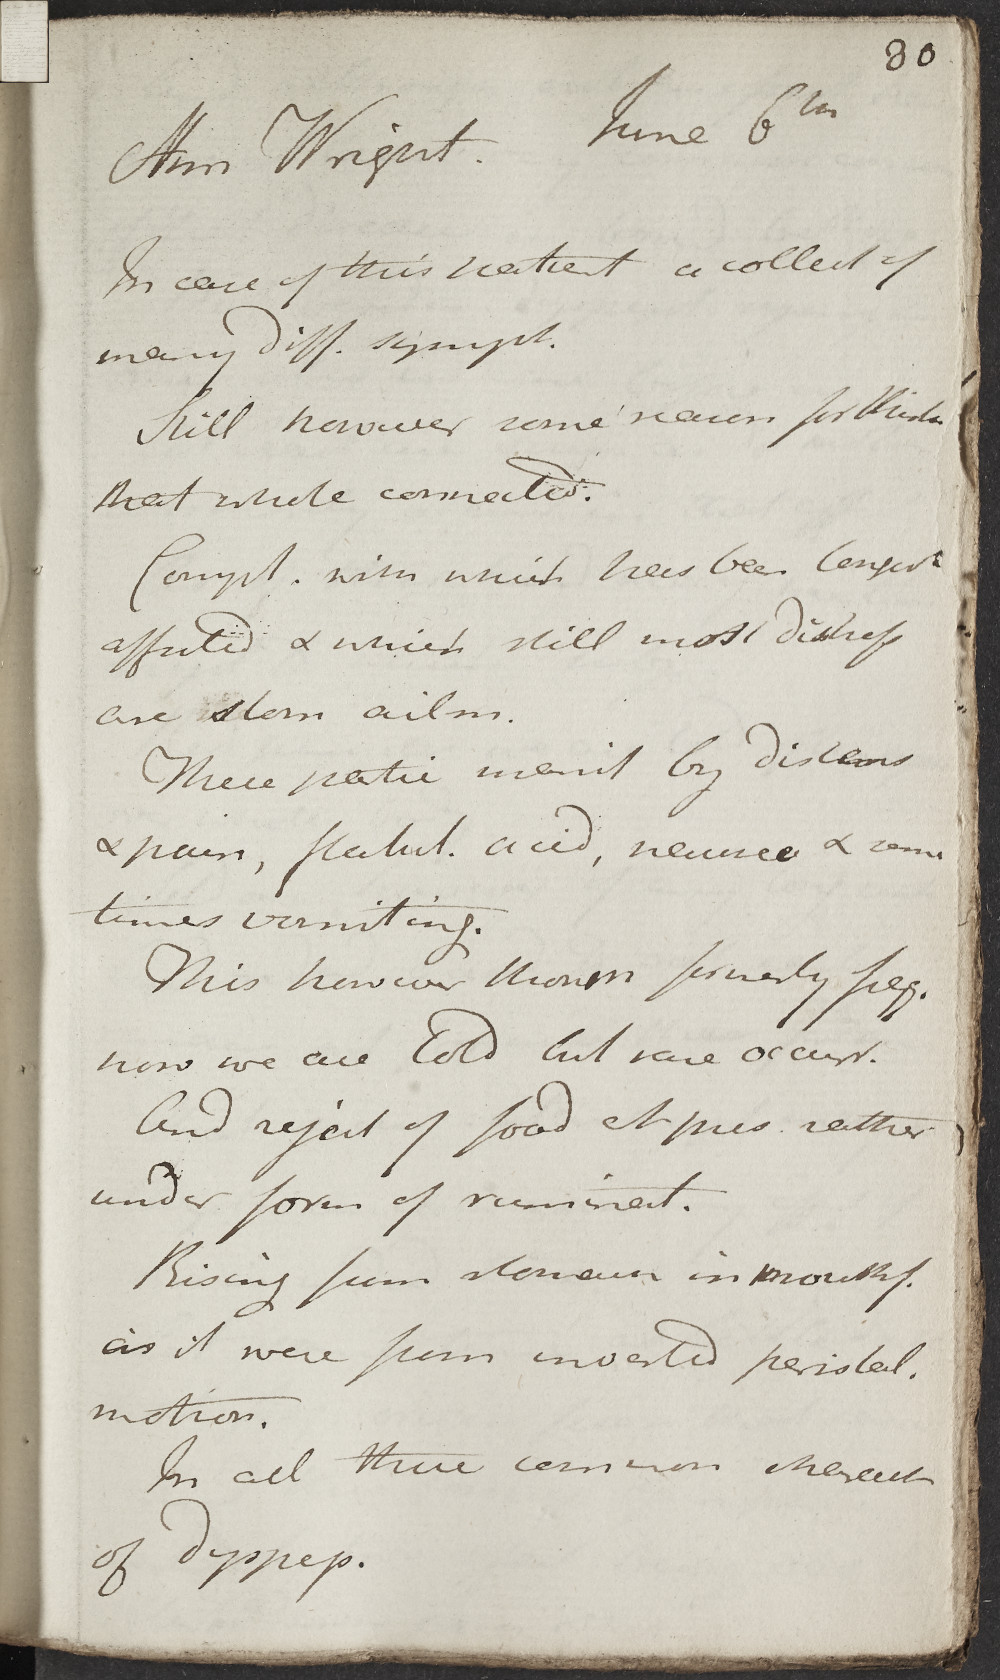 80
Ann Wright. June 6th
In case of this patient a collect of
many diff. sympt.
Still however some reason for think
that whole connected.
Compl. with which has been longest
affected & which still most distress
are stom ailm.
These partic manif by distens
& pain, flatul. acid, nausea & some
times vomiting.
This however thoun formerly freq.
now we are told but rare occurr.
And reject of food at pres. rather
under form of ruminat.
Rising from stomach in mouthf.
as it were from inverted peristal.
motion.
In all these common charact
of dyspep.